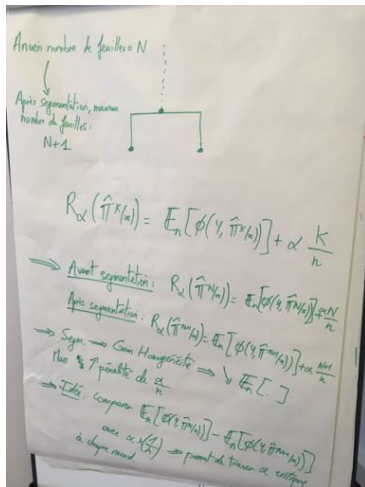 Ancien nombre de feuilles = N
Après segmentation, nouveau
nombre de feuilles :
N+1
R_α(π̂^K(x)) = E_n[φ(Y, π̂^K(x))] + α K/n
⇒ Avant segmentation : R_α(π̂^N(x)) = E_n[φ(Y, π̂^N(x))] + α N/n
Après segmentation : R_α(π̂^{N+1}(x)) = E_n[φ(Y, π̂^{N+1}(x))] + α (N+1)/n
→ Segm. → Gain Homogénéité ⇒ ↘ E_n[.]
Mais ↑ pénalité de α/n
⇒ Idée : comparer E_n[φ(Y, π̂^N(x))] - E_n[φ(Y, π̂^{N+1}(x))]
avec α × (1/n)
à chaque nœud ⇒ permet de trouver α critique